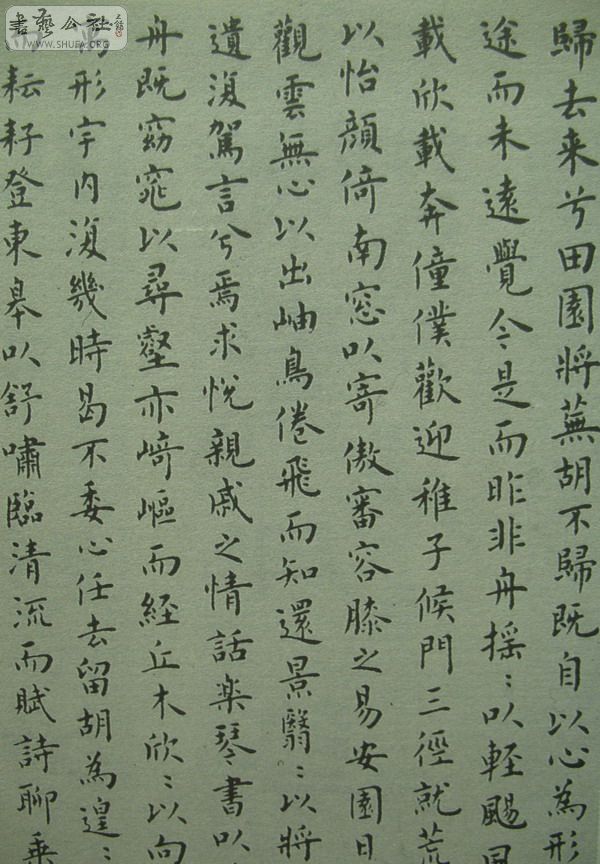 書藝公社
WWW.SHUFA.ORG
歸去来兮田園將蕪胡不歸既自以心為形
途而未遠覺今是而昨非舟摇〻以輊颺風
載欣載奔僮僕歡迎稚子候門三徑就荒
以怡顔倚南窓以寄傲審容膝之易安園日
觀雲無心以出岫鳥倦飛而知還景翳〻以將
遺復駕言兮焉求悦親戚之情話楽琴書以
舟既窈窕以尋壑亦崎嶇而経丘木欣〻以向
形宇内復幾時曷不委心任去留胡為遑〻
耘耔登東皋以舒嘯臨清流而賦詩聊乗